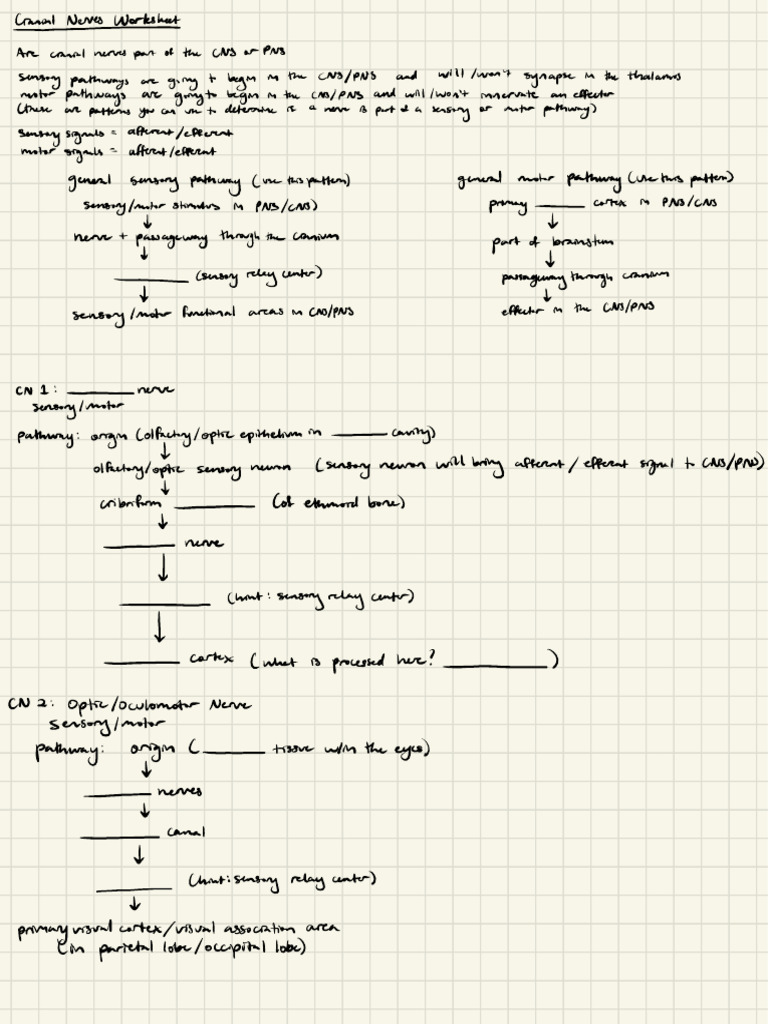 Cranial Nerves Worksheet
Are cranial nerves part of the CNS or PNS
sensory pathways are going to begin in the CNS/PNS and will/won't synapse in the thalamus
motor pathways are going to begin in the CNS/PNS and will/won't innervate an effector
(these are patterns you can use to determine if a nerve is part of a sensory or motor pathway)
sensory signals = afferent/efferent
motor signals = afferent/efferent
general sensory pathway (use this pattern)
sensory/motor stimulus in PNS/CNS)
↓
nerve + passageway through the cranium
↓
________ (sensory relay center)
↓
sensory/motor functional areas in CNS/PNS
general motor pathway (use this pattern)
primary ______ cortex in PNS/CNS
↓
part of brainstem
↓
passageway through cranium
↓
effector in the CNS/PNS
CN 1: ________ nerve
sensory/motor
pathway: origin (olfactory/optic epithelium in ______ cavity)
↓
olfactory/optic sensory neuron (sensory neuron will bring afferent/efferent signal to CNS/PNS)
↓
cribriform ________ (of ethmoid bone)
↓
________ nerve
↓
________ (hint: sensory relay center)
↓
________ cortex (what is processed here? __________)
CN 2: Optic/Oculomotor Nerve
sensory/motor
pathway: origin (______ tissue w/in the eyes)
↓
________ nerves
↓
________ canal
↓
________ (hint: sensory relay center)
↓
primary visual cortex/visual association area
(in parietal lobe/occipital lobe)